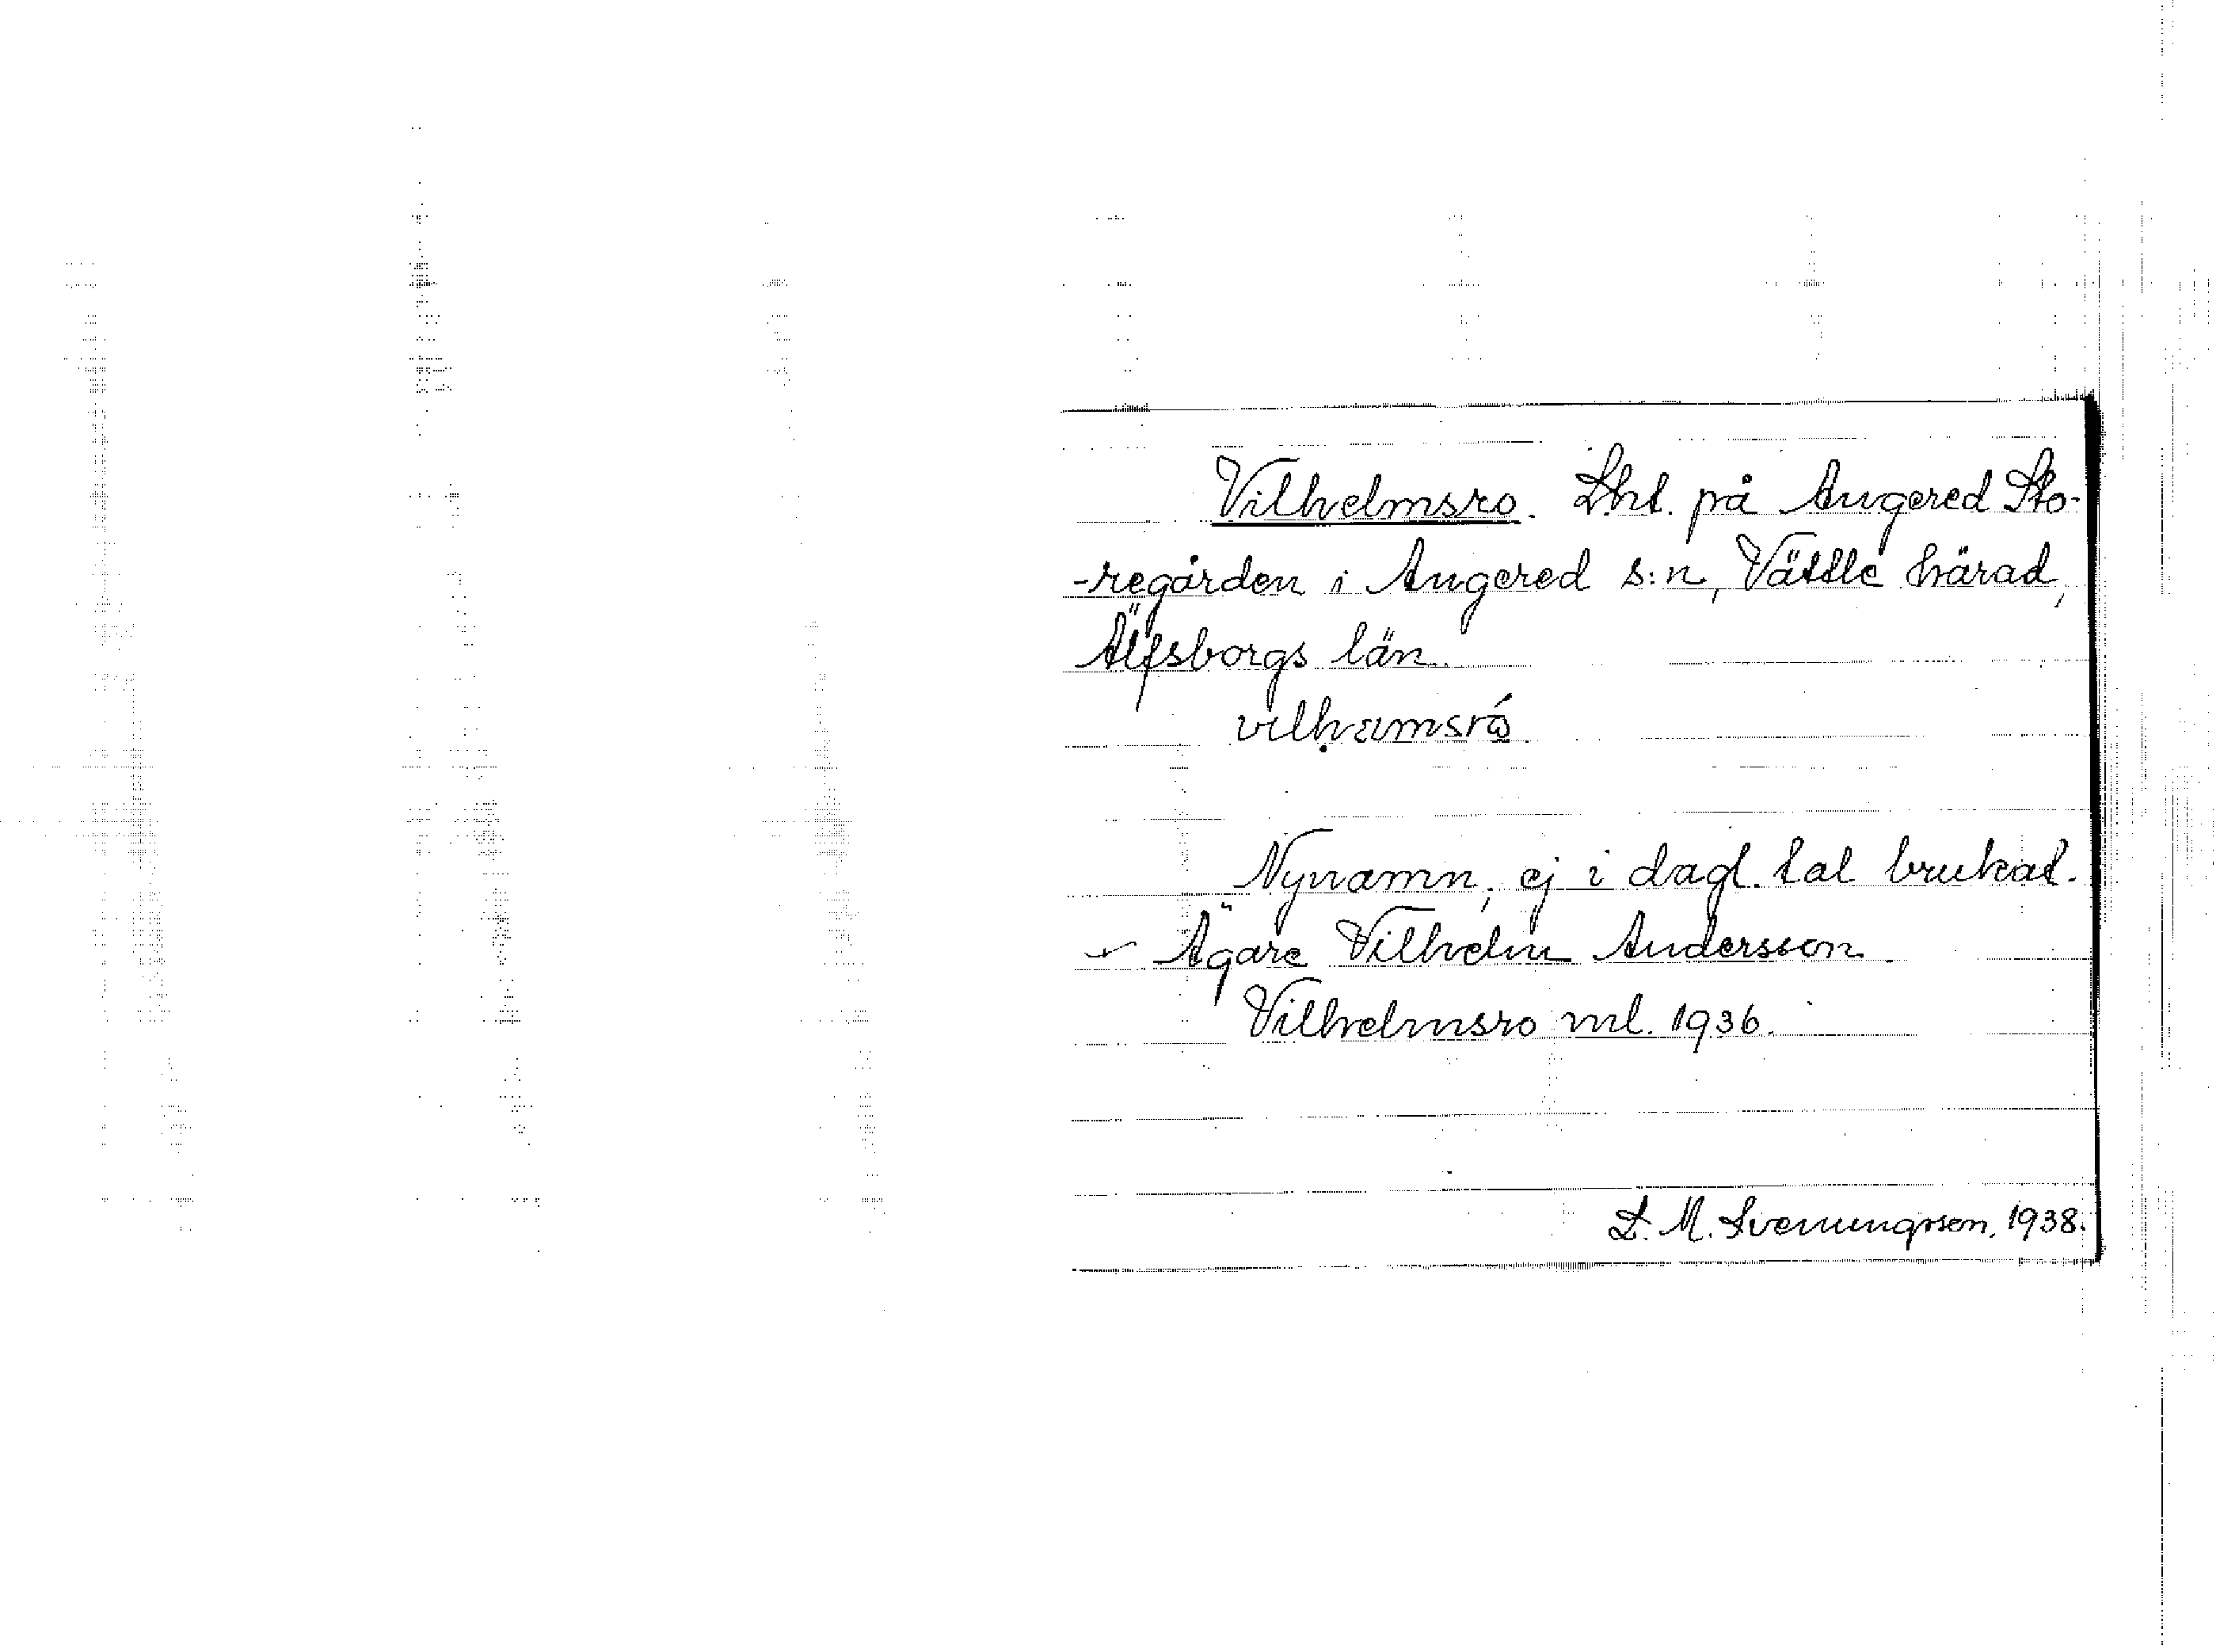 Vilhelmsro. Lht. på Angered Sto-
-regården i Angered s:n, Vättle härad,
Älfsborgs län.
Nynamn, ej i dagl. tal brukat.
Ägare Vilhelm Andersson.
Vilhelmsro ml. 1936.
L. M. Svenungsson, 1938.